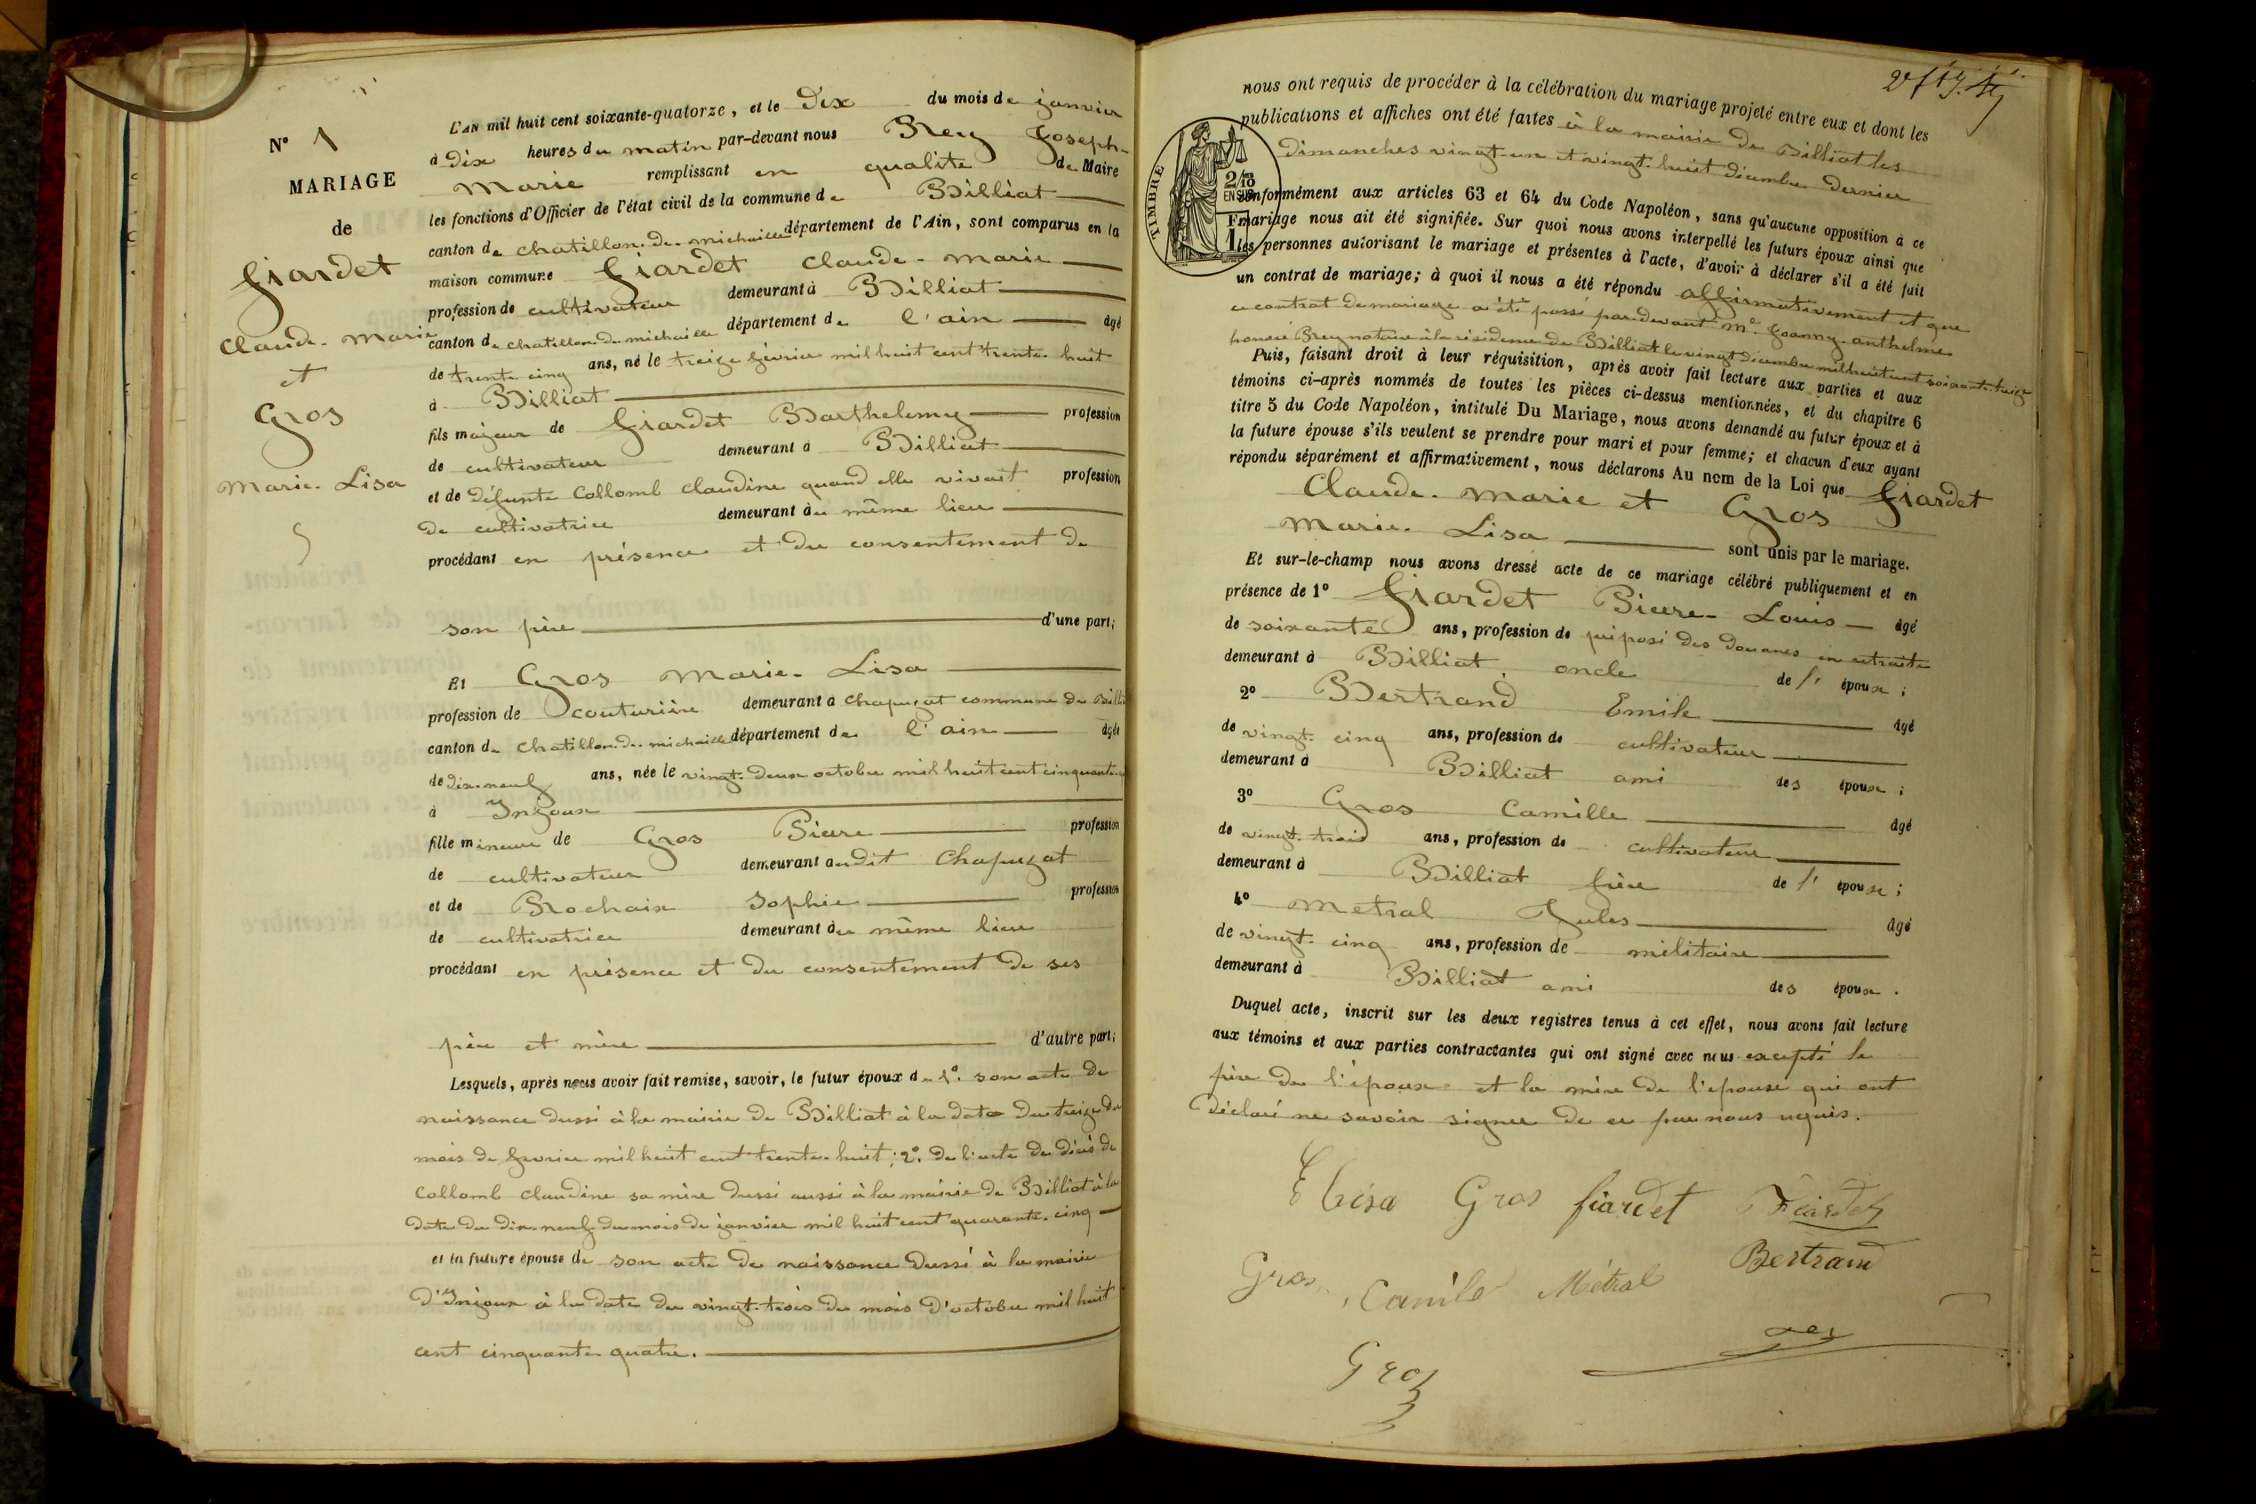 N° 1
MARIAGE
de
fiardet
Claude-Marie
et
Gros
Marie-Lisa
L'AN mil huit cent soixante-quatorze, et le Dix du mois de janvier
à dix heures du matin par-devant nous Rey Joseph-
Marie remplissant en qualité de Maire
les fonctions d'Officier de l'état civil de la commune de Billiat
canton de chatillon-de-michaille département de l'Ain, sont comparus en la
maison commune fiardet Claude-Marie
profession de cultivateur demeurant à Billiat
canton de chatillon-de-michaille département de l'ain âgé
de trente-cinq ans, né le treize février mil huit cent trente-huit
à Billiat
fils majeur de fiardet Barthelemy profession
de cultivateur demeurant à Billiat
et de défunte Collomb claudine quand elle vivait profession
de cultivatrice demeurant au même lieu
procédant en présence et du consentement de
son père d'une part;
Et Gros Marie-Lisa
profession de couturière demeurant à Chapuzat commune de Billi
canton de chatillon-de-michaille département de l'ain âgée
de dix-neuf ans, née le vingt-deux octobre mil huit cent cinquante
à Injoux
fille mineure de Gros Pierre profession
de cultivateur demeurant audit Chapuzat
et de Brochaix Sophie profession
de cultivatrice demeurant au même lieu
procédant en présence et du consentement de ses
père et mère d'autre part;
Lesquels, après nous avoir fait remise, savoir, le futur époux de 1°. son acte de
naissance dressé à la mairie de Billiat à la date du treize du
mois de fevrier mil huit cent trente-huit; 2°. de l'acte de décès de
Collomb claudine sa mère dressé aussi à la mairie de Billiat à la
date du dix-neuf du mois de janvier mil huit cent quarante-cinq
et la future épouse de son acte de naissance dressé à la mairie
d'Injoux à la date du vingt-trois du mois d'octobre mil huit
cent cinquante-quatre.
nous ont requis de procéder à la célébration du mariage projeté entre eux et dont les
publications et affiches ont été faites à la mairie de Billiat les
dimanches vingt-un et vingt-huit décembre dernier
TIMBRE
2/10
EN SUS
F
1
conformément aux articles 63 et 64 du Code Napoléon, sans qu'aucune opposition à ce
mariage nous ait été signifiée. Sur quoi nous avons interpellé les futurs époux ainsi que
les personnes autorisant le mariage et présentes à l'acte, d'avoir à déclarer s'il a été fait
un contrat de mariage; à quoi il nous a été répondu affirmativement et que
ce contrat de mariage a été passé par-devant Me Joanny-anthelme
honoré Brey notaire à la résidence de Billiat le vingt décembre mil huit cent soixante-treize
Puis, faisant droit à leur réquisition, après avoir fait lecture aux parties et aux
témoins ci-après nommés de toutes les pièces ci-dessus mentionnées, et du chapitre 6
titre 5 du Code Napoléon, intitulé Du Mariage, nous avons demandé au futur époux et à
la future épouse s'ils veulent se prendre pour mari et pour femme; et chacun d'eux ayant
répondu séparément et affirmativement, nous déclarons Au nom de la Loi que fiardet
Claude-Marie et Gros
Marie-Lisa sont unis par le mariage.
Et sur-le-champ nous avons dressé acte de ce mariage célébré publiquement et en
présence de 1° fiardet Pierre-Louis âgé
de soixante ans, profession de préposé des douanes en retraite
demeurant à Billiat oncle de l'épouse;
2° Bertrand Emile âgé
de vingt-cinq ans, profession de cultivateur
demeurant à Billiat ami des époux;
3° Gros Camille âgé
de vingt-trois ans, profession de cultivateur
demeurant à Billiat frère de l'épouse;
4° Metral Jules âgé
de vingt-cinq ans, profession de militaire
demeurant à Billiat ami des époux.
Duquel acte, inscrit sur les deux registres tenus à cet effet, nous avons fait lecture
aux témoins et aux parties contractantes qui ont signé avec nous excepté le
père de l'époux et la mère de l'épouse qui ont
déclaré ne savoir signer de ce par nous requis.
Elisa Gros fiardet Fiardet
Bertrand
Gros Camile Métral
Gros